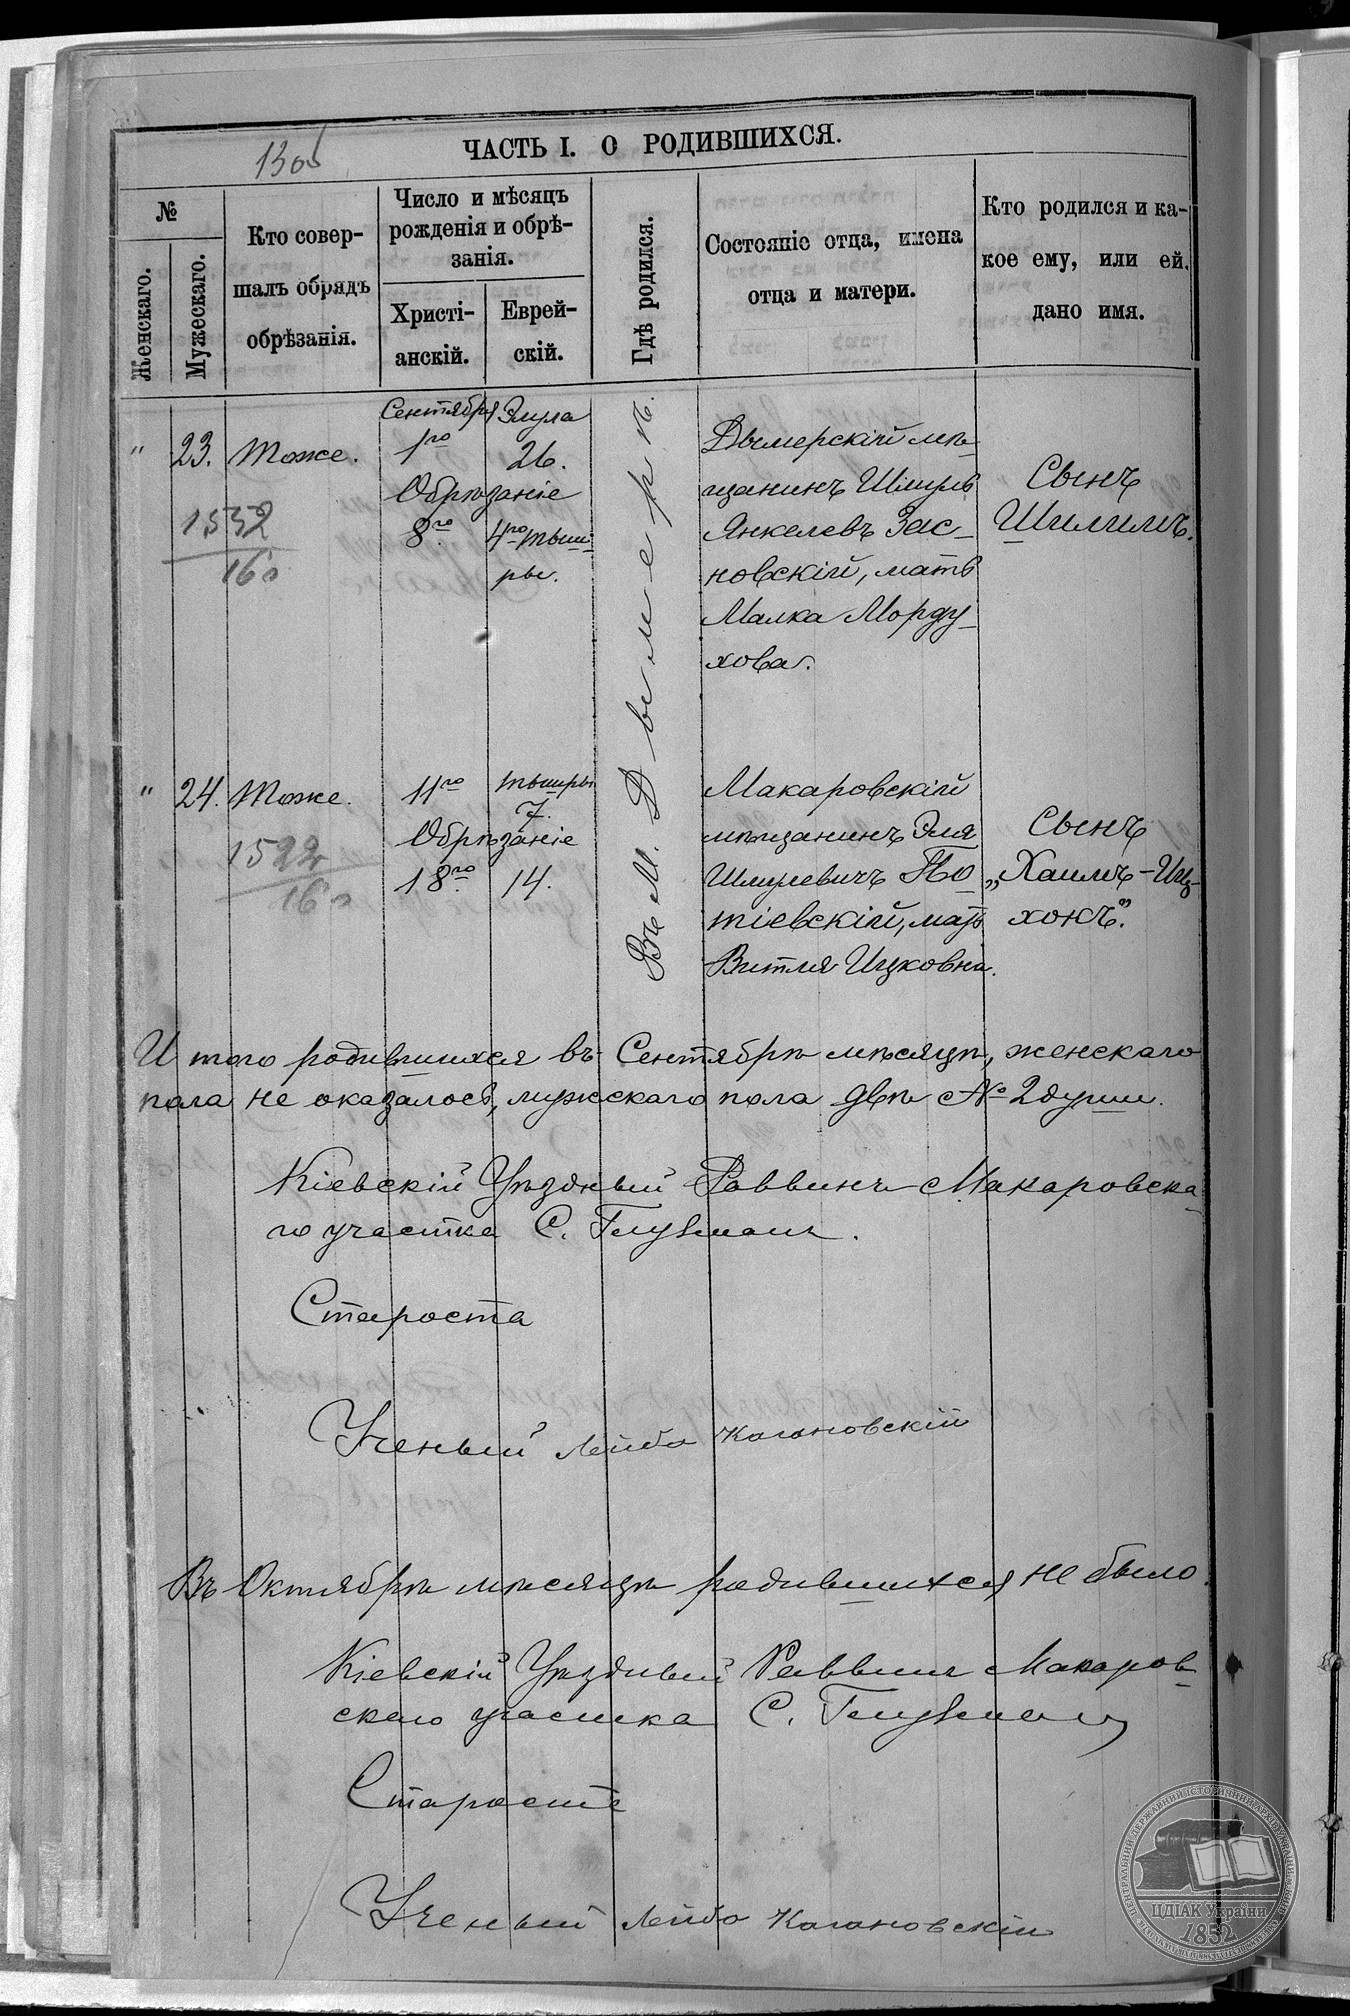 130
ЧАСТЬ I. О РОДИВШИХСЯ.
№
Женскаго.
Мужескаго.
Кто совер-
шалъ обрядъ
обрѣзанія.
Число и мѣсяцъ
рожденія и обрѣ-
занія.
Христі-
анскій.
Еврей-
скій.
Гдѣ родился.
Состояніе отца, имена
отца и матери.
Кто родился и ка-
кое ему, или ей,
дано имя.
" 23. Тоже.
1532
160
Сентября
1го
Элула
26.
Обрѣзаніе
8го
4го тыши-
ры.
Въ М. Дымерѣ.
Дымерскій мѣ-
щанинъ Шмуль
Янкелевъ Зас-
новскій, мать
Малка Морду-
хова.
Сынъ
Шлиимъ.
" 24. Тоже.
1522
160
11го
тышры
7.
Обрѣзаніе
18го
14.
Макаровскій
мѣщанинъ Эля
Шмулевичъ По-
тіевскій, мать
Витля Ицковна.
Сынъ
„Хаимъ-Иц-
хокъ".
Итого родившихся въ Сентябрѣ мѣсяцѣ, женскаго
пола не оказалось, мужскаго пола двѣ № 2 души.
Кіевскій Уѣздный Раввинъ Макаровска-
го участка С. Глузманъ.
Староста
Ученый Лейба Кагановскій
Въ Октябрѣ мѣсяцѣ родившихся не было.
Кіевскій Уѣздный Раввинъ Макаров-
скаго участка С. Глузманъ
Староста
Ученый Лейба Кагановскій
ЦЕНТРАЛЬНИЙ ДЕРЖАВНИЙ ІСТОРИЧНИЙ АРХІВ УКРАЇНИ
ЦДІАК України
1852